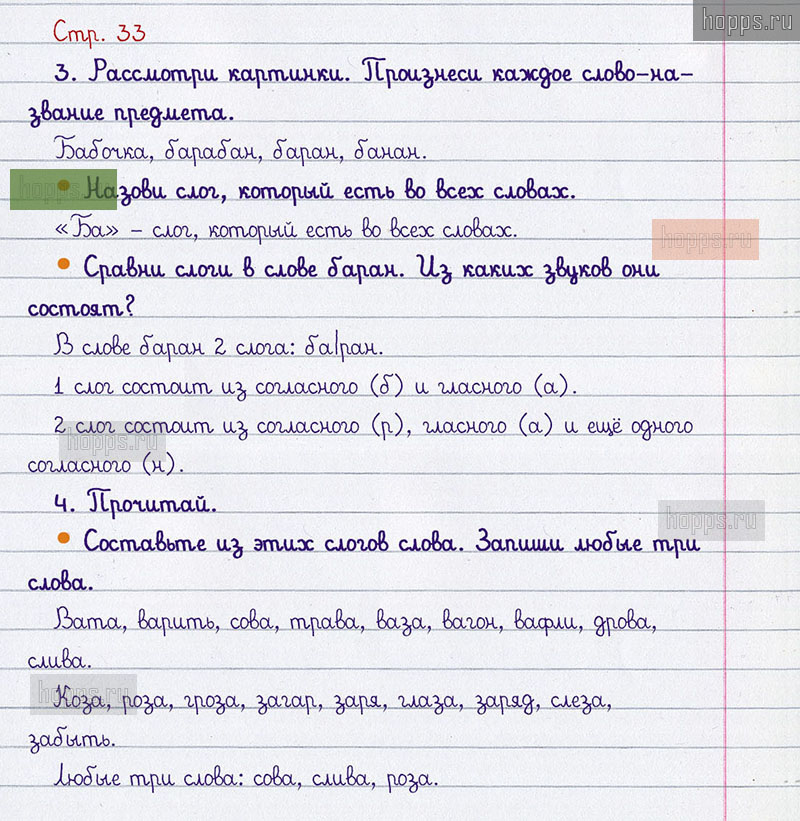 hopps.ru
Стр. 33
3. Рассмотри картинки. Произнеси каждое слово-на-
звание предмета.
Бабочка, барабан, баран, банан.
hopps.ru
• Назови слог, который есть во всех словах.
«Ба» – слог, который есть во всех словах.
hopps.ru
• Сравни слоги в слове баран. Из каких звуков они
состоят?
В слове баран 2 слога: ба|ран.
1 слог состоит из согласного (б) и гласного (а).
2 слог состоит из согласного (р), гласного (а) и ещё одного
hopps.ru
согласного (н).
4. Прочитай.
hopps.ru
• Составьте из этих слогов слова. Запиши любые три
слова.
Вата, варить, сова, трава, ваза, вагон, вафли, дрова,
слива.
hopps.ru
Коза, роза, гроза, загар, заря, глаза, заряд, слеза,
забыть.
Любые три слова: сова, слива, роза.